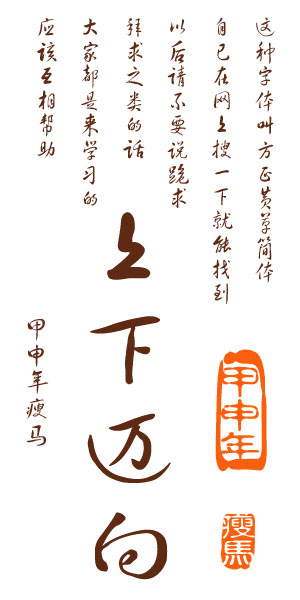 这种字体叫方正黄草简体
自己在网上搜一下就能找到
以后请不要说跪求
拜求之类的话
大家都是来学习的
应该互相帮助
上下迈向
甲申年瘦马
甲申年
瘦馬